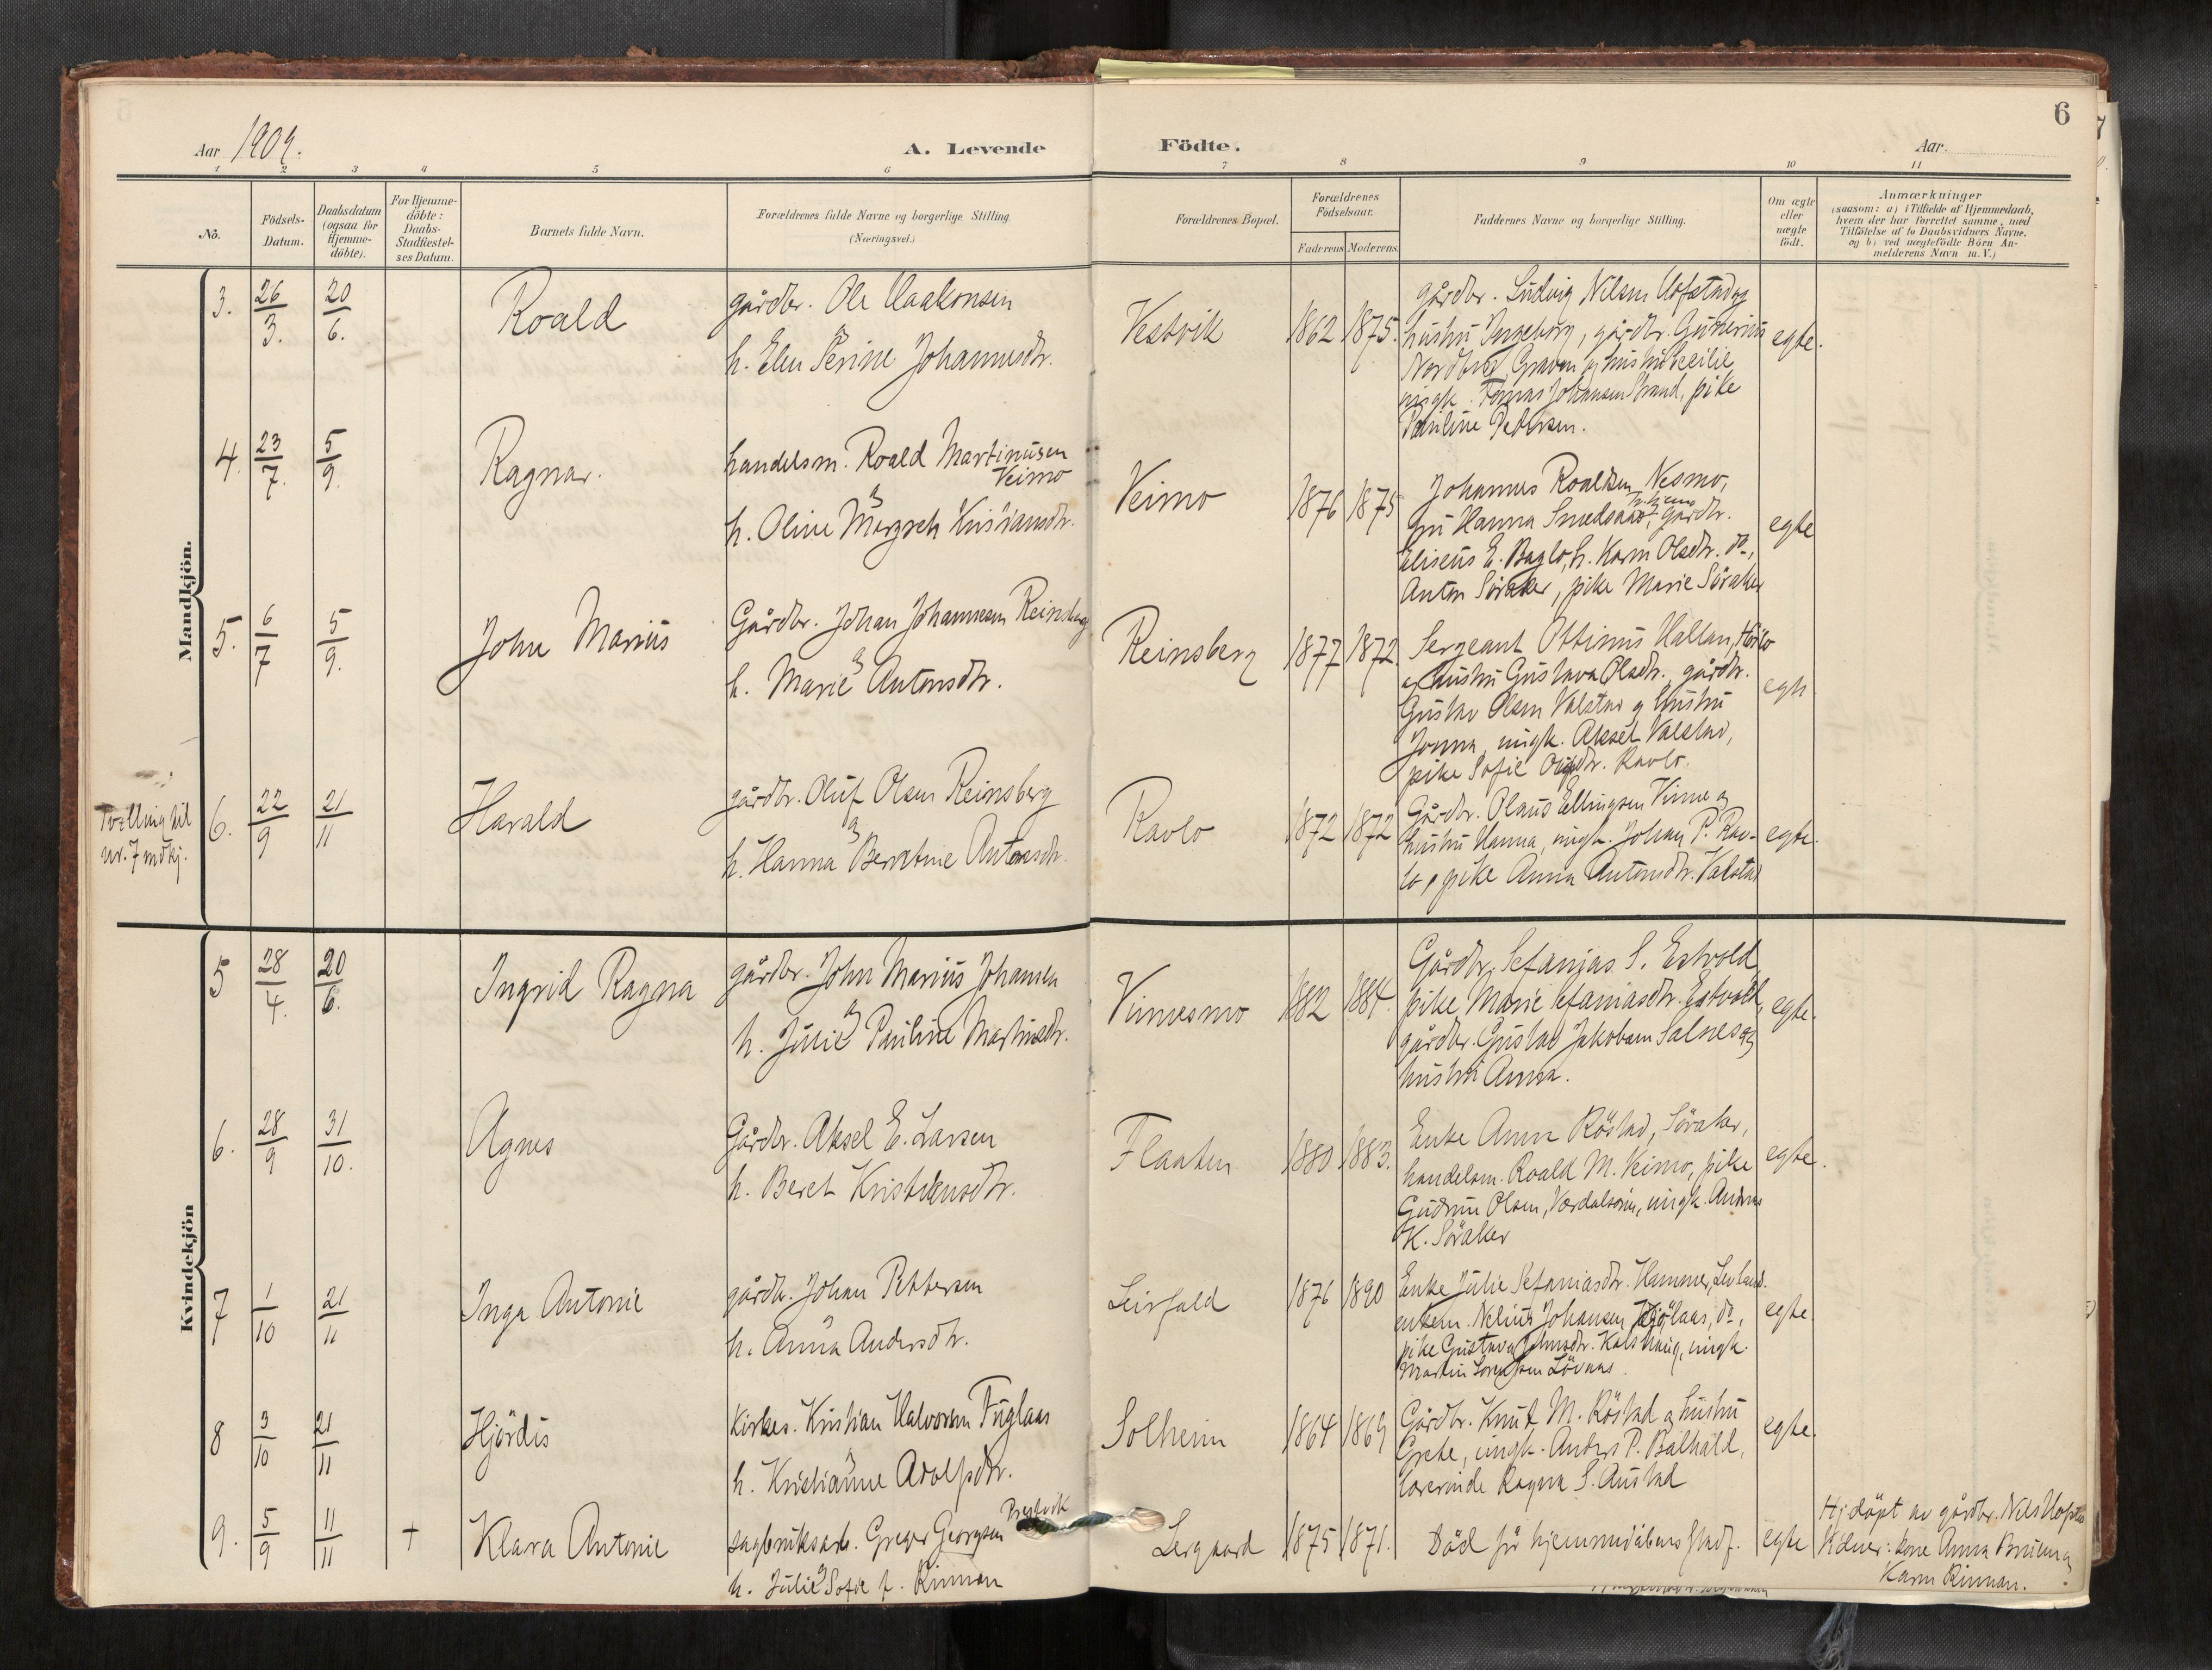 6
Aar 1909.
A. Levende Födte.
Aar.
1 2 3 4 5 6 7 8 9 10 11
No.
Födsels-Datum.
Daabsdatum (ogsaa for Hjemme-döbte).
For Hjemme-döbte: Daabs-Stadfæstel-ses Datum.
Barnets fulde Navn.
Forældrenes fulde Navne og borgerlige Stilling
(Næringsvei.)
Forældrenes Bopæl.
Forældrenes Födselsaar.
Faderens Moderens
Faddernes Navne og borgerlige Stilling.
Om ægte eller uægte födt.
Anmærkninger
(saasom: a) i Tilfælde af Hjemmedaab,
hvem der har forrettet samme, med
Tilföielse af to Daabsvidners Navne.
og b) ved uægtefödte Börn An-
melderens Navn m. V.)
Mandkjön.
3. 26/3. 20/6. Roald
gårdbr. Ole Haakonsen
h. Elen Perine Johannesdtr.
Vestvik 1862 1875.
gårdbr. Ludvig Nilsen Hofstad og
hustru Ingeborg, gårdbr. Gunerius
Nordbred Graven og hustru Cecilie
ungk. Tomas Johansen Strand, pike
Pauline Petersen.
egte.
4. 23/7. 5/9. Ragnar.
handelsm. Roald Martinusen
Veimo
og
h. Oline Margreta Kristiansdtr.
Veimo 1876 1875
Johannes Roaldsen Nesmo,
fru Hanna Smedsaas, gårdbr.
Eliseus E. Baglo, h. Karen Olsdtr. do.,
Anton Söraker, pike Marie Söraker
egte
5. 6/7 5/9. John Marius
Gårdbr. Johan Johannesen Reinsberg
og
h. Marie Antonsdtr.
Reinsberg 1877 1872.
Sergeant Ottinius Hallan,
og hustru Gustava Olsdtr. gårdbr.
Gustav Olsen Valstad og hustru
Jonna, ungk. Aksel Valstad,
pike Sofie Olufsdtr. Ravlo.
egte
Tvilling til
nr. 7 mdkj.
6. 22/9 21/11 Harald
gårdbr. Oluf Olsen Reinsberg
og
h. Hanna Berntine Antonsdtr.
Ravlo 1872 1872
Gårdbr. Olaus Ellingsen Vinne og
hustru Hanna, ungk. Johan P. Rav-
lo, pike Anna Antonsdtr. Valstad
egte.
Kvindekjön
5 28/4. 20/6. Ingrid Ragna
gårdbr. John Marius Johansen
og
h. Julie Pauline Martinsdtr.
Vinnesmo 1882 1884.
Gårdbr. Sefanias S. Estvold,
pike Marie Sefaniasdtr. Estvold,
gårdbr. Gustav Jakobsen Salnes og
hustru Anna.
egte.
6. 28/9 31/10. Agnes
Gårdbr. Aksel E. Larsen
h. Beret Kristensdtr.
Flaaten 1880 1883.
Enke Anna Röstad, Söraker,
handelsm. Roald M. Veimo, pike
Gudrun Olsen, Værdalsören, ungk. Andreas
K. Söraker
egte.
7 1/10 21/11 Inga Antonie
gårdbr. Johan Petterson
og
h. Anna Andersdtr.
Leirfald 1876 1890
Enke Julie Sefaniasdtr. Hammer, Levland.
enkem. Nelius Johansen do.,
pike Gustava Johnsdtr. Karlshaug, ungk.
Martin Lorentsen Lövaas.
egte.
8 3/10 21/11 Hjördis
Kirkes. Kristian Halvorsen Fuglaas
og
h. Kristianne Adolfsdtr.
Solheim 1864 1869
Gårdbr. Knut M. Röstad og hustru
Grete, ungk. Anders P. Balhald,
lærerinde Ragna S. Austad
egte.
9. 5/9 11/11 + Klara Antonie
sagbruksarb. Greger Georgsen Prestvik
og
h. Julie Sofie f. Rinnan
Lergaard 1875 1871.
Död för hjemmedåbens stadf.
egte
Hj.döpt av gårdbr. Nils Hofstad
Vidner: kone Anna Bruem og
Karen Rinnan.